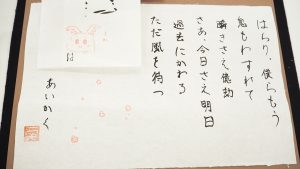 はらり、僕らもう
息もわすれて
瞬きさえ億劫
さあ、今日さえ明日
過去にかわる
ただ風を待つ
あいかく
は